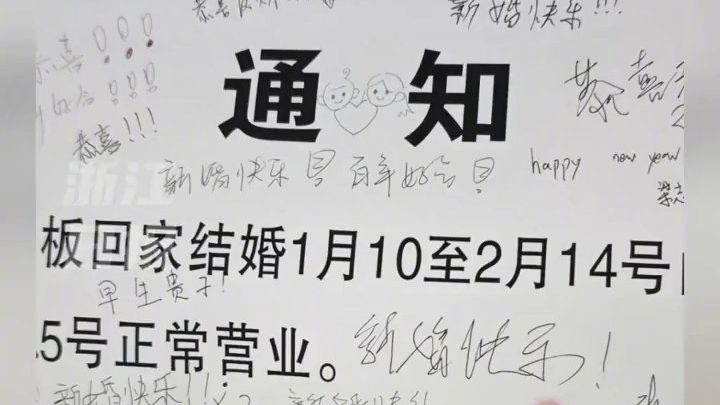 恭喜
新婚快乐!!!
恭喜!!!
通知
恭喜!!!
新婚快乐 百年好合
happy new year
浙江
板回家结婚1月10至2月14号
早生贵子!
5号正常营业。
新婚快乐!
新婚快乐!!!